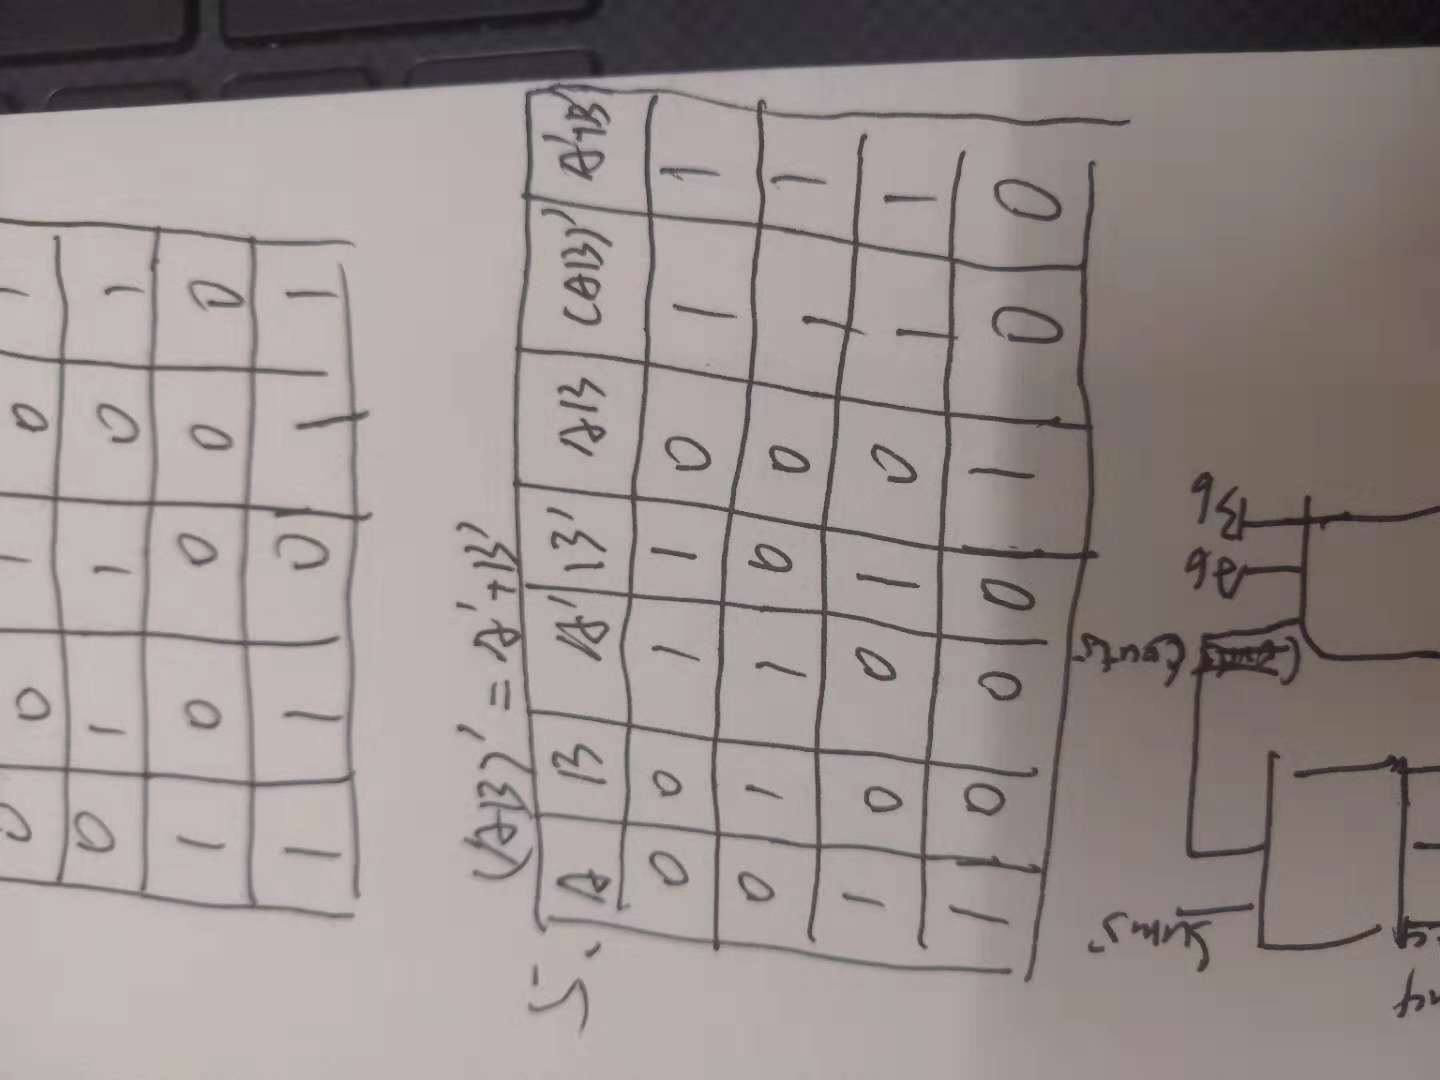 0 0 1 0 1
0 1 1 0 1
1 0 0 0 0
1 1 0 1 1
(AB)' = A'+B'
5.
A B A' B' AB (AB)' A'+B'
0 0 1 1 0 1 1
0 1 1 0 0 1 1
1 0 0 1 0 1 1
1 0 0 0 1 0 0
Cout5
Sum5